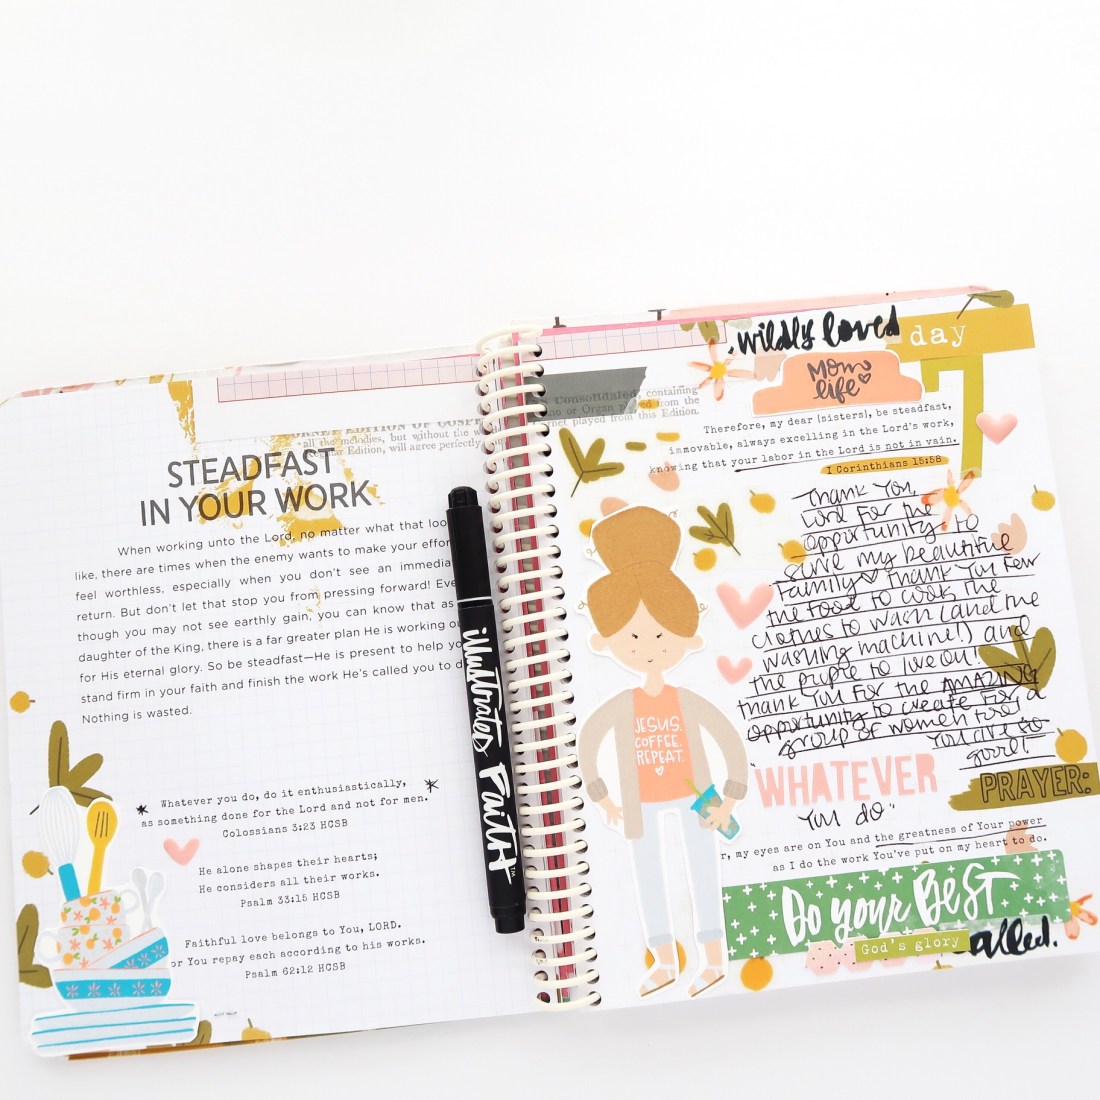 ORNET EDITION OF GOSPEL
all the melodies, but without the w
Regular Edition, will agree perfectly
STEADFAST
IN YOUR WORK
When working unto the Lord, no matter what that loo
like, there are times when the enemy wants to make your effor
feel worthless, especially when you don't see an immedia
return. But don't let that stop you from pressing forward! Eve
though you may not see earthly gain, you can know that as
daughter of the King, there is a far greater plan He is working ou
for His eternal glory. So be steadfast—He is present to help yo
stand firm in your faith and finish the work He's called you to d
Nothing is wasted.
Whatever you do, do it enthusiastically,
as something done for the Lord and not for men.
Colossians 3:23 HCSB
He alone shapes their hearts;
He considers all their works.
Psalm 33:15 HCSB
Faithful love belongs to You, LORD.
or You repay each according to his works.
Psalm 62:12 HCSB
illustrated Faith™
s Consolidated, containing
ano or Organ played from the
ornet played from this Edition.
wildly loved
day
7
Mom
life
Therefore, my dear [sisters], be steadfast,
immovable, always excelling in the Lord's work,
knowing that your labor in the Lord is not in vain.
1 Corinthians 15:58
Thank You,
Lord for the
opportunity to
serve my beautiful
family Thank You for
the food to cook the
clothes to wash (and the
washing machine!) and
the people to live on!
thank You for the AMAZING
opportunity to create for a
group of women too!
You are so
good!
JESUS.
COFFEE.
REPEAT.
"WHATEVER
You do"
PRAYER:
r, my eyes are on You and the greatness of Your power
as I do the work You've put on my heart to do.
Do your BEST
God's glory
called.